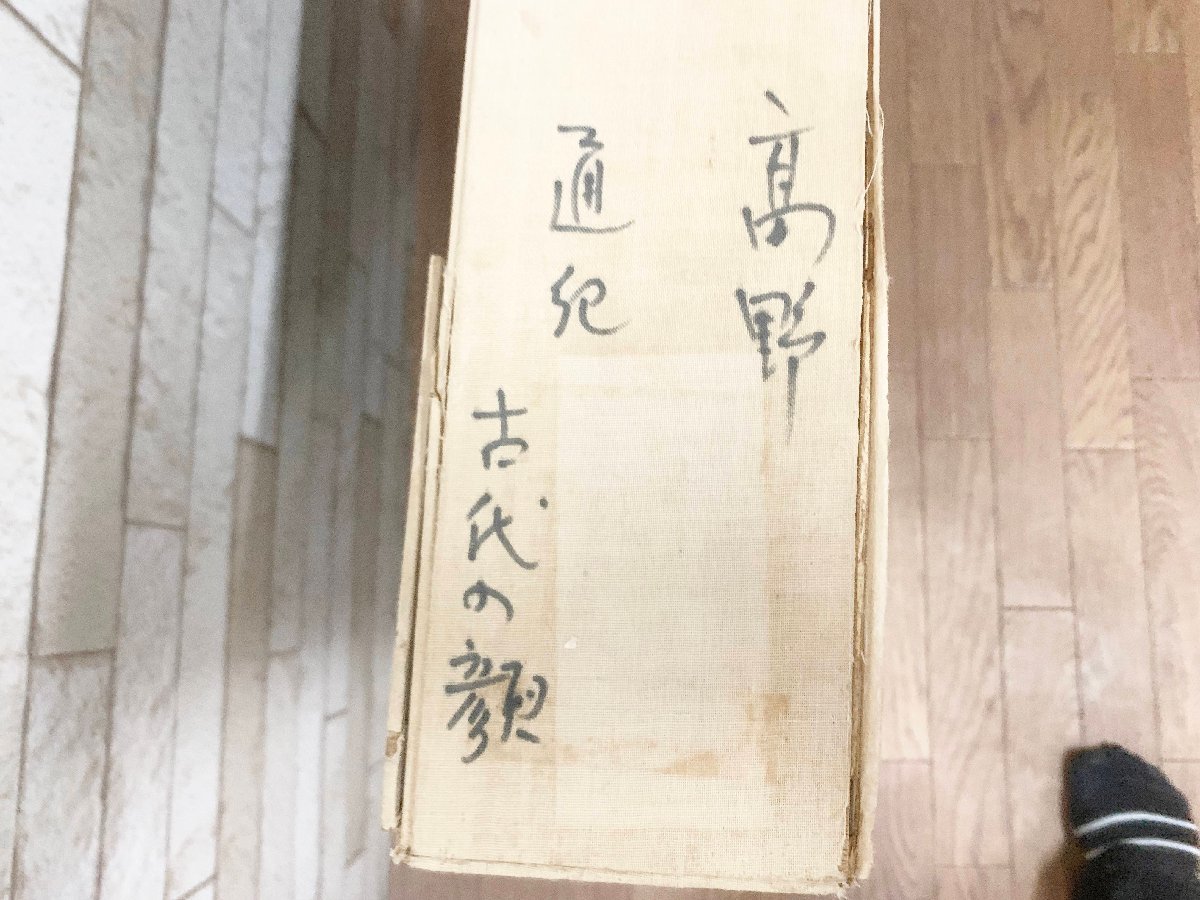 高野
通紀
古代の顔